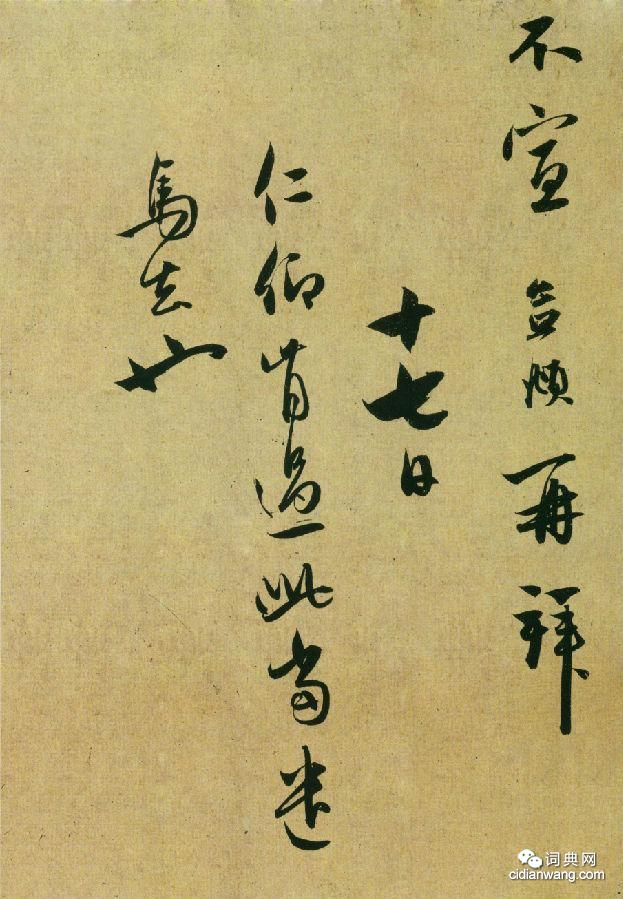 不宣 再拜
十七日
仁仰肯過此當遣
馬去也
词典网
cidianwang.com